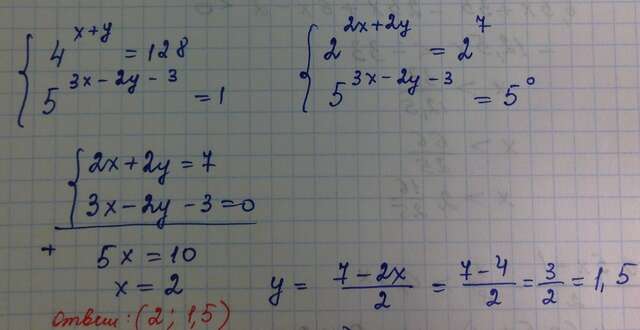 { 4^(x+y) = 128
5^(3x-2y-3) = 1
{ 2^(2x+2y) = 2^7
5^(3x-2y-3) = 5^0
{ 2x+2y = 7
3x-2y-3=0
+ 5x = 10
x = 2
y = (7-2x)/2 = (7-4)/2 = 3/2 = 1,5
Ответ: (2; 1,5)